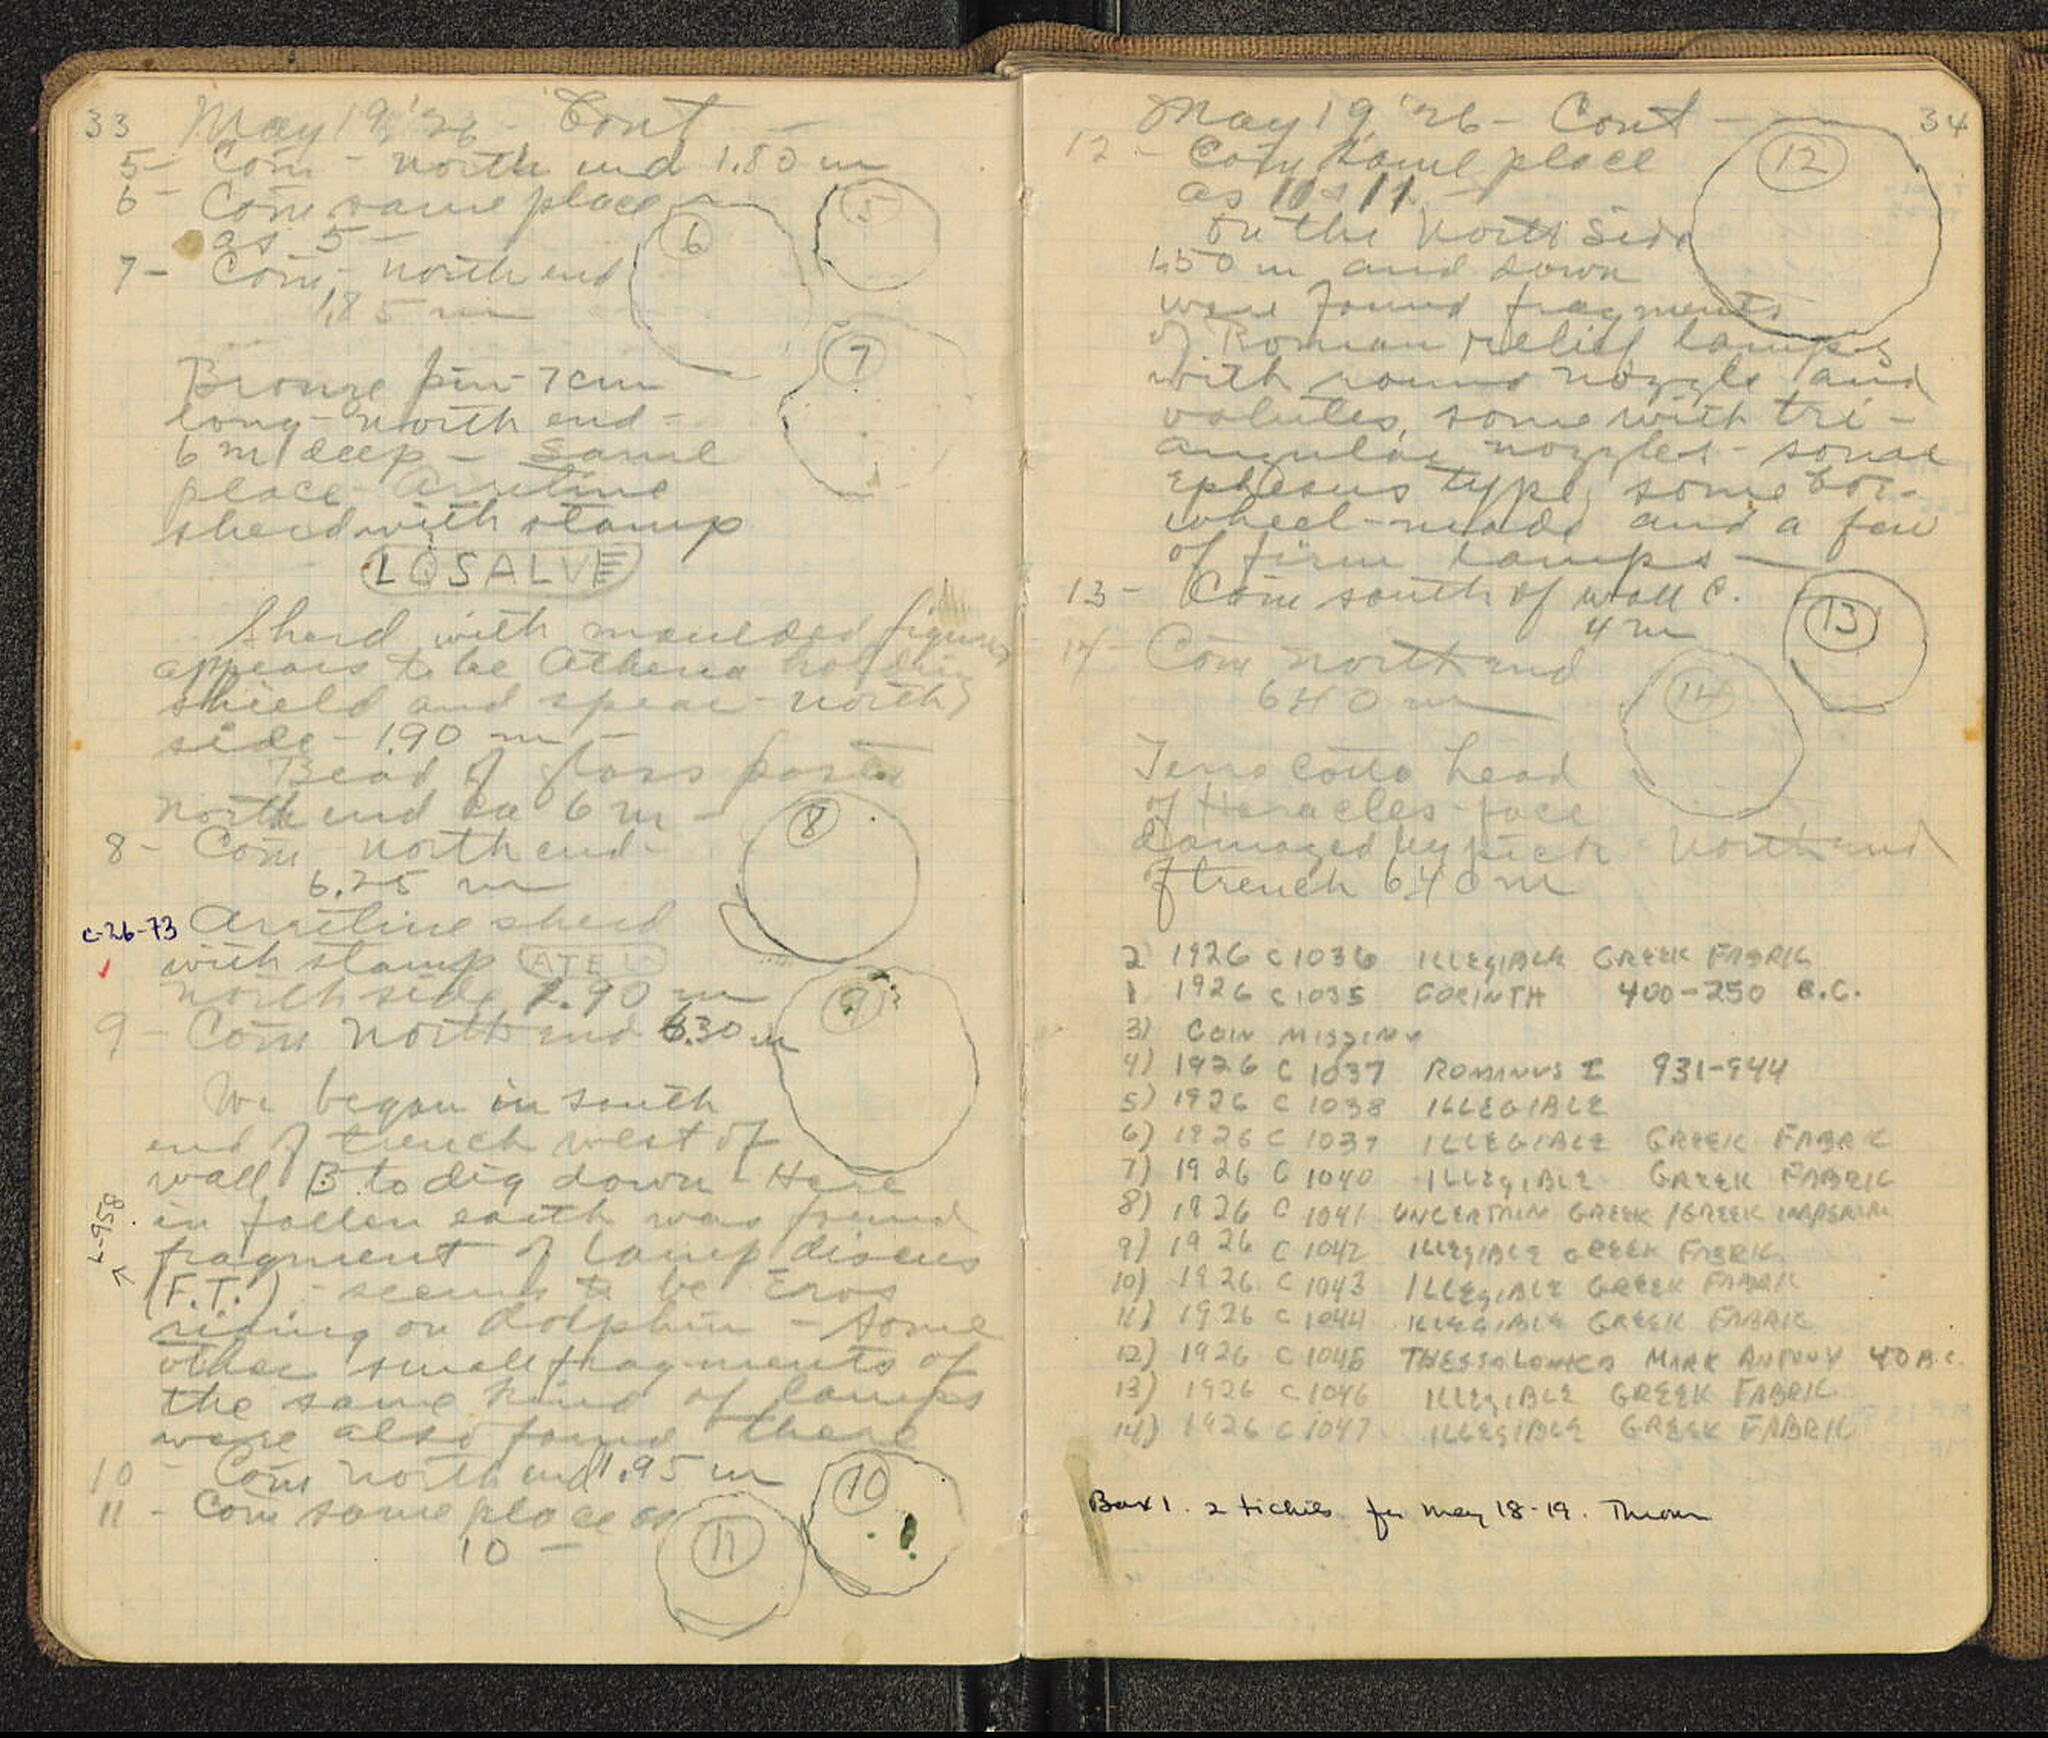 33 May 19, '26 - Cont -
5 - Coin - north end 1.80 m
6 - Coin same place
as 5 -
7 - Coin, - north end
1.85 m
5
6
7
Bronze pin - 7 cm
long - north end -
6 m deep - Same
place - Arretine
sherd with stamp
LOSALVE
Sherd with moulded figure
appears to be Athena holding
shield and spear - north
side - 1.90 m -
Bead of glass paste
north end ca 6 m -
8 - Coin north end -
6.25 m
8
C-26-73 Arretine sherd
with stamp ATEL
north side 1.90 m
9 - Coin north end 6.30 m
9
We began in south
end of trench west of
wall B to dig down - Here
in fallen earth was found
L-958
fragment of lamp discus
(F.T.) - seems to be Eros
riding on dolphin - Some
other small fragments of
the same kind of lamps
were also found there
10 - Coin north end 1.95 m
11 - Coin same place as
10 -
10
11
May 19 '26 - Cont - 34
12 - Coin same place
as 10 & 11 -
12
On the north side
1.50 m and down
were found fragments
of Roman relief lamps
with round nozzle and
volutes, some with tri-
angular nozzles - some
Ephesus type, some Cor.
wheel-made and a few
of firm lamps -
13 - Coin south of wall C.
4 m
13
14 - Coin north end
6.40 m
14
Terra cotta head
of Heracles - face
damaged by pick - North end
of trench 6.40 m
2 1926 C 1036 ILLEGIBLE GREEK FABRIC
1 1926 C 1035 CORINTH 400-250 B.C.
3) COIN MISSING
4) 1926 C 1037 ROMANUS I 931-944
5) 1926 C 1038 ILLEGIBLE
6) 1926 C 1039 ILLEGIBLE GREEK FABRIC
7) 1926 C 1040 ILLEGIBLE GREEK FABRIC
8) 1926 C 1041 UNCERTAIN GREEK / GREEK IMPERIAL
9) 1926 C 1042 ILLEGIBLE GREEK FABRIC
10) 1926 C 1043 ILLEGIBLE GREEK FABRIC
11) 1926 C 1044 ILLEGIBLE GREEK FABRIC
12) 1926 C 1045 THESSALONICA MARK ANTONY 40 B.C.
13) 1926 C 1046 ILLEGIBLE GREEK FABRIC
14) 1926 C 1047 ILLEGIBLE GREEK FABRIC
Box 1. 2 tickets for May 18-19. Thrown